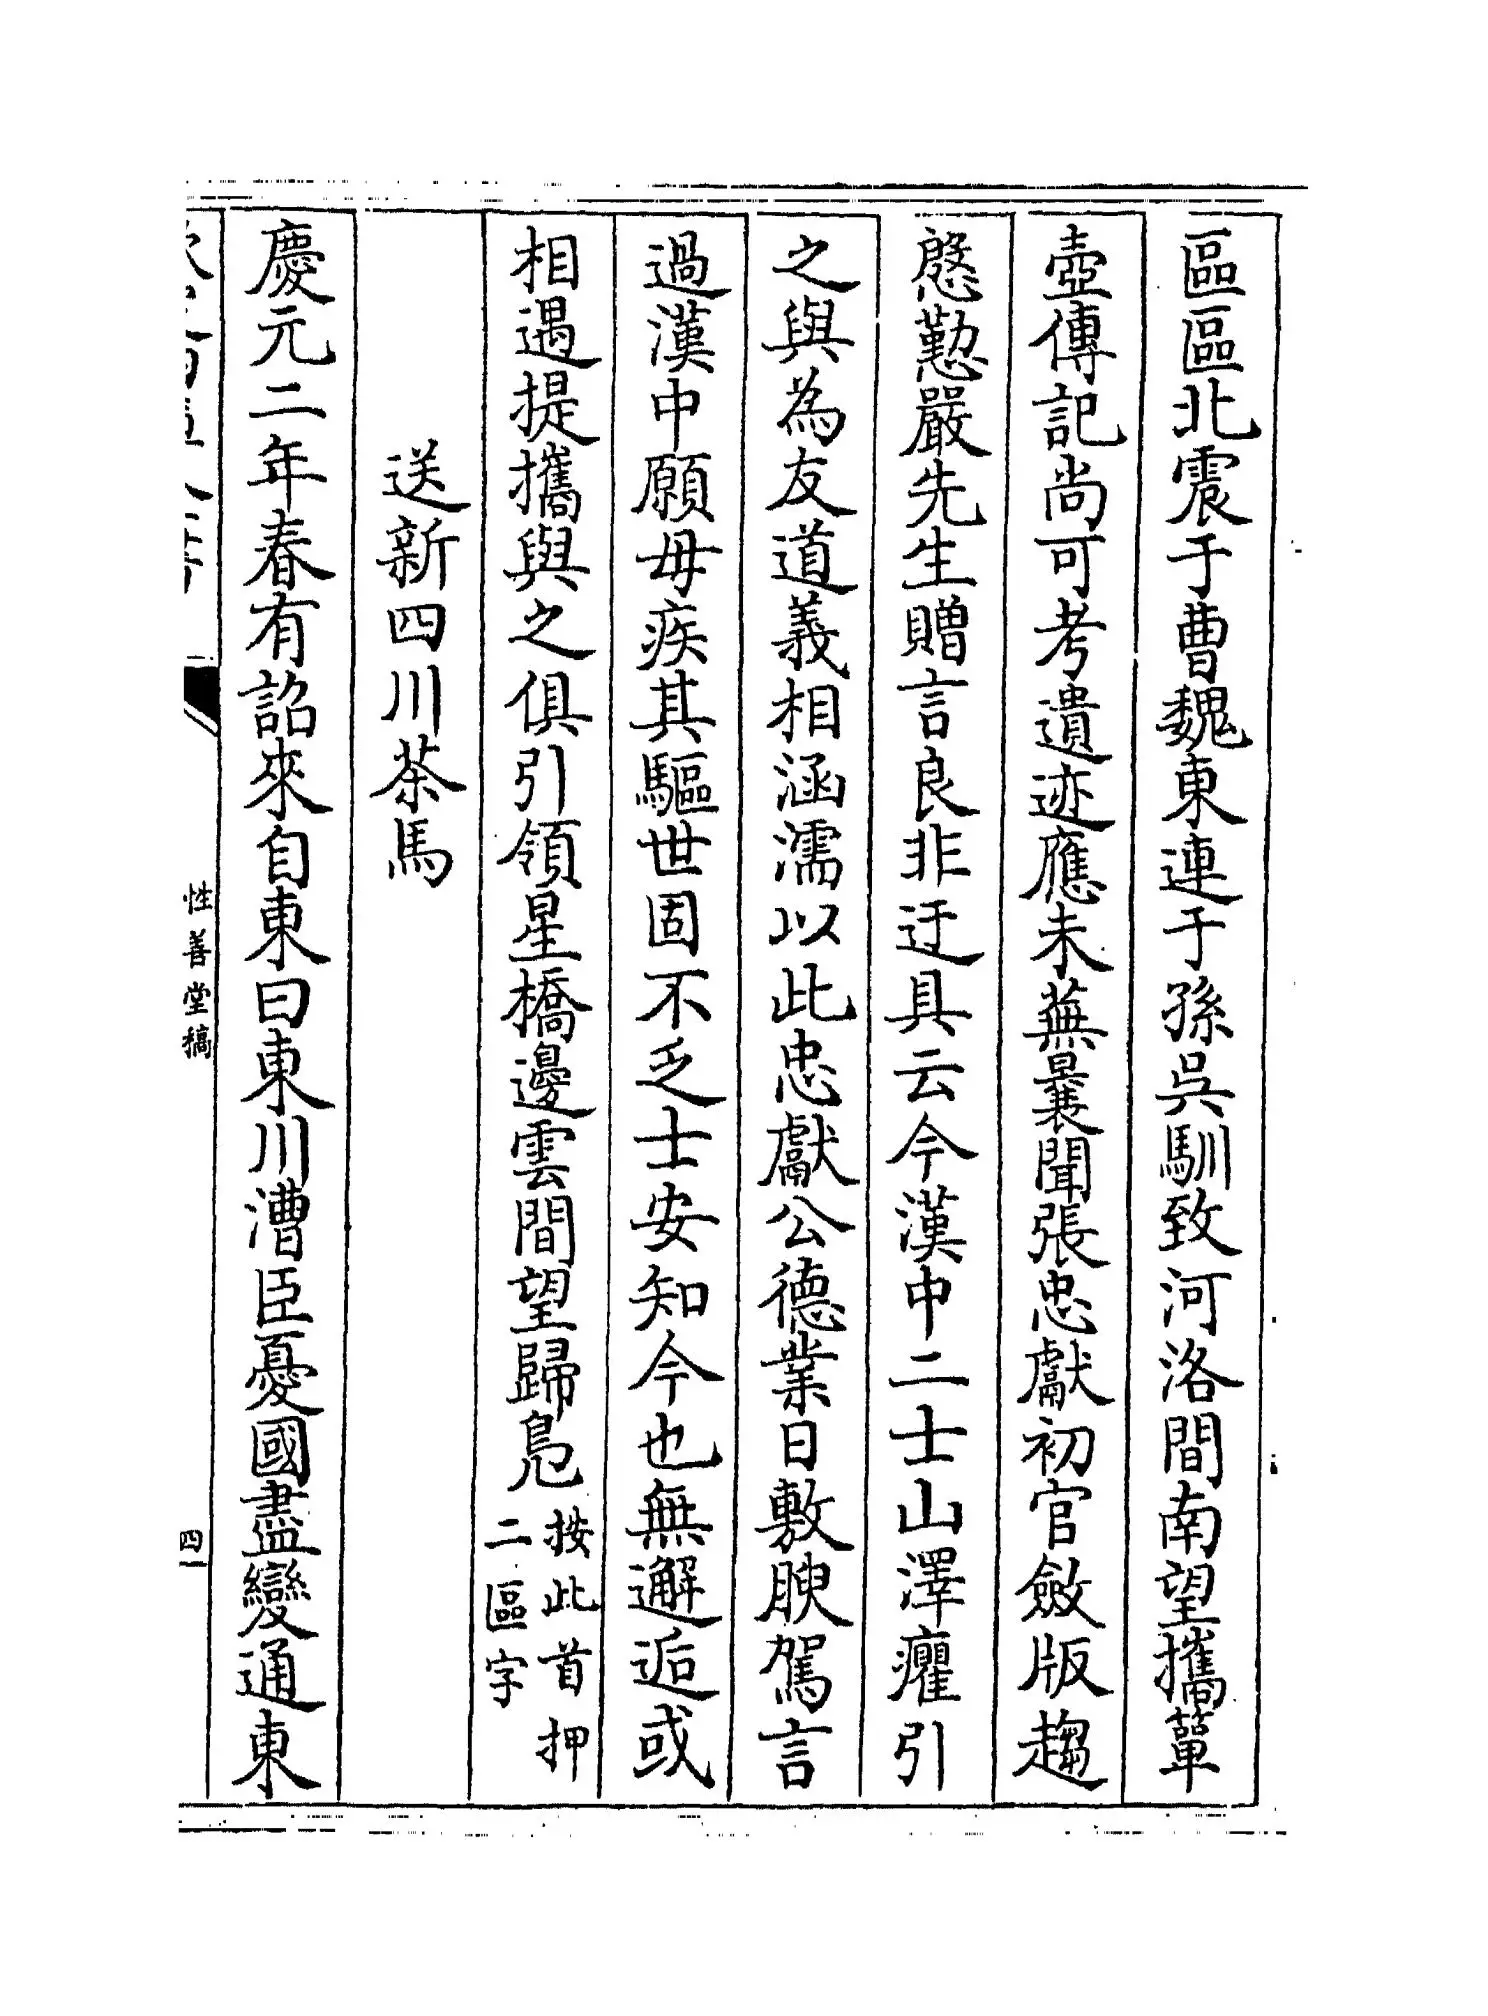 區區北震于曹魏東連于孫吳馴致河洛間南望攜簞
壺傳記尚可考遺迹應未蕪曩聞張忠獻初官斂版趨
慇懃嚴先生贈言良非迂具云今漢中二士山澤癯引
之與為友道義相涵濡以此忠獻公德業日敷腴駕言
過漢中願毋疾其驅世固不乏士安知今也無邂逅或
相遇提攜與之俱引領星橋邊雲間望歸鳬
按此首押
二區字
送新四川茶馬
慶元二年春有詔來自東曰東川漕臣憂國盡變通東
性善堂稿
四